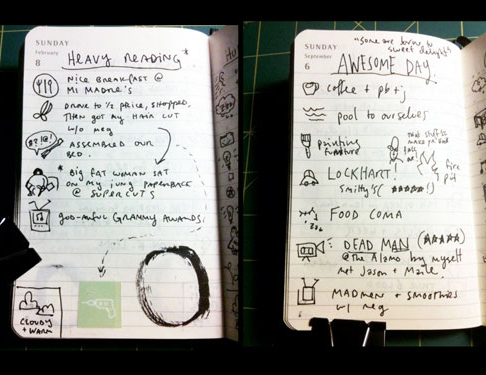 SUNDAY
February
8
HEAVY READING *
NICE BREAKFAST @
MI MADRE'S
DROVE TO 1/2 PRICE, SHOPPED,
THEN GOT MY HAIR CUT
W/O MEG
ASSEMBLED OUR
BED.
* BIG FAT WOMAN SAT
ON MY JUNG PAPERBACK
@ SUPERCUTS
GOD-AWFUL GRAMMY AWARDS.
CLOUDY
+ WARM
SUNDAY
September
6
"some are born to
sweet delight"
AWESOME DAY
coffee + pb + j
pool to ourselves
painting
furniture
that stuff'll
make
fire
pit
LOCKHART!
Smitty's! (★★★★★!)
FOOD COMA
DEAD MAN (★★★★★)
@ the Alamo by myself
met Jason +
MADMEN + SMOOTHIES
w/ meg